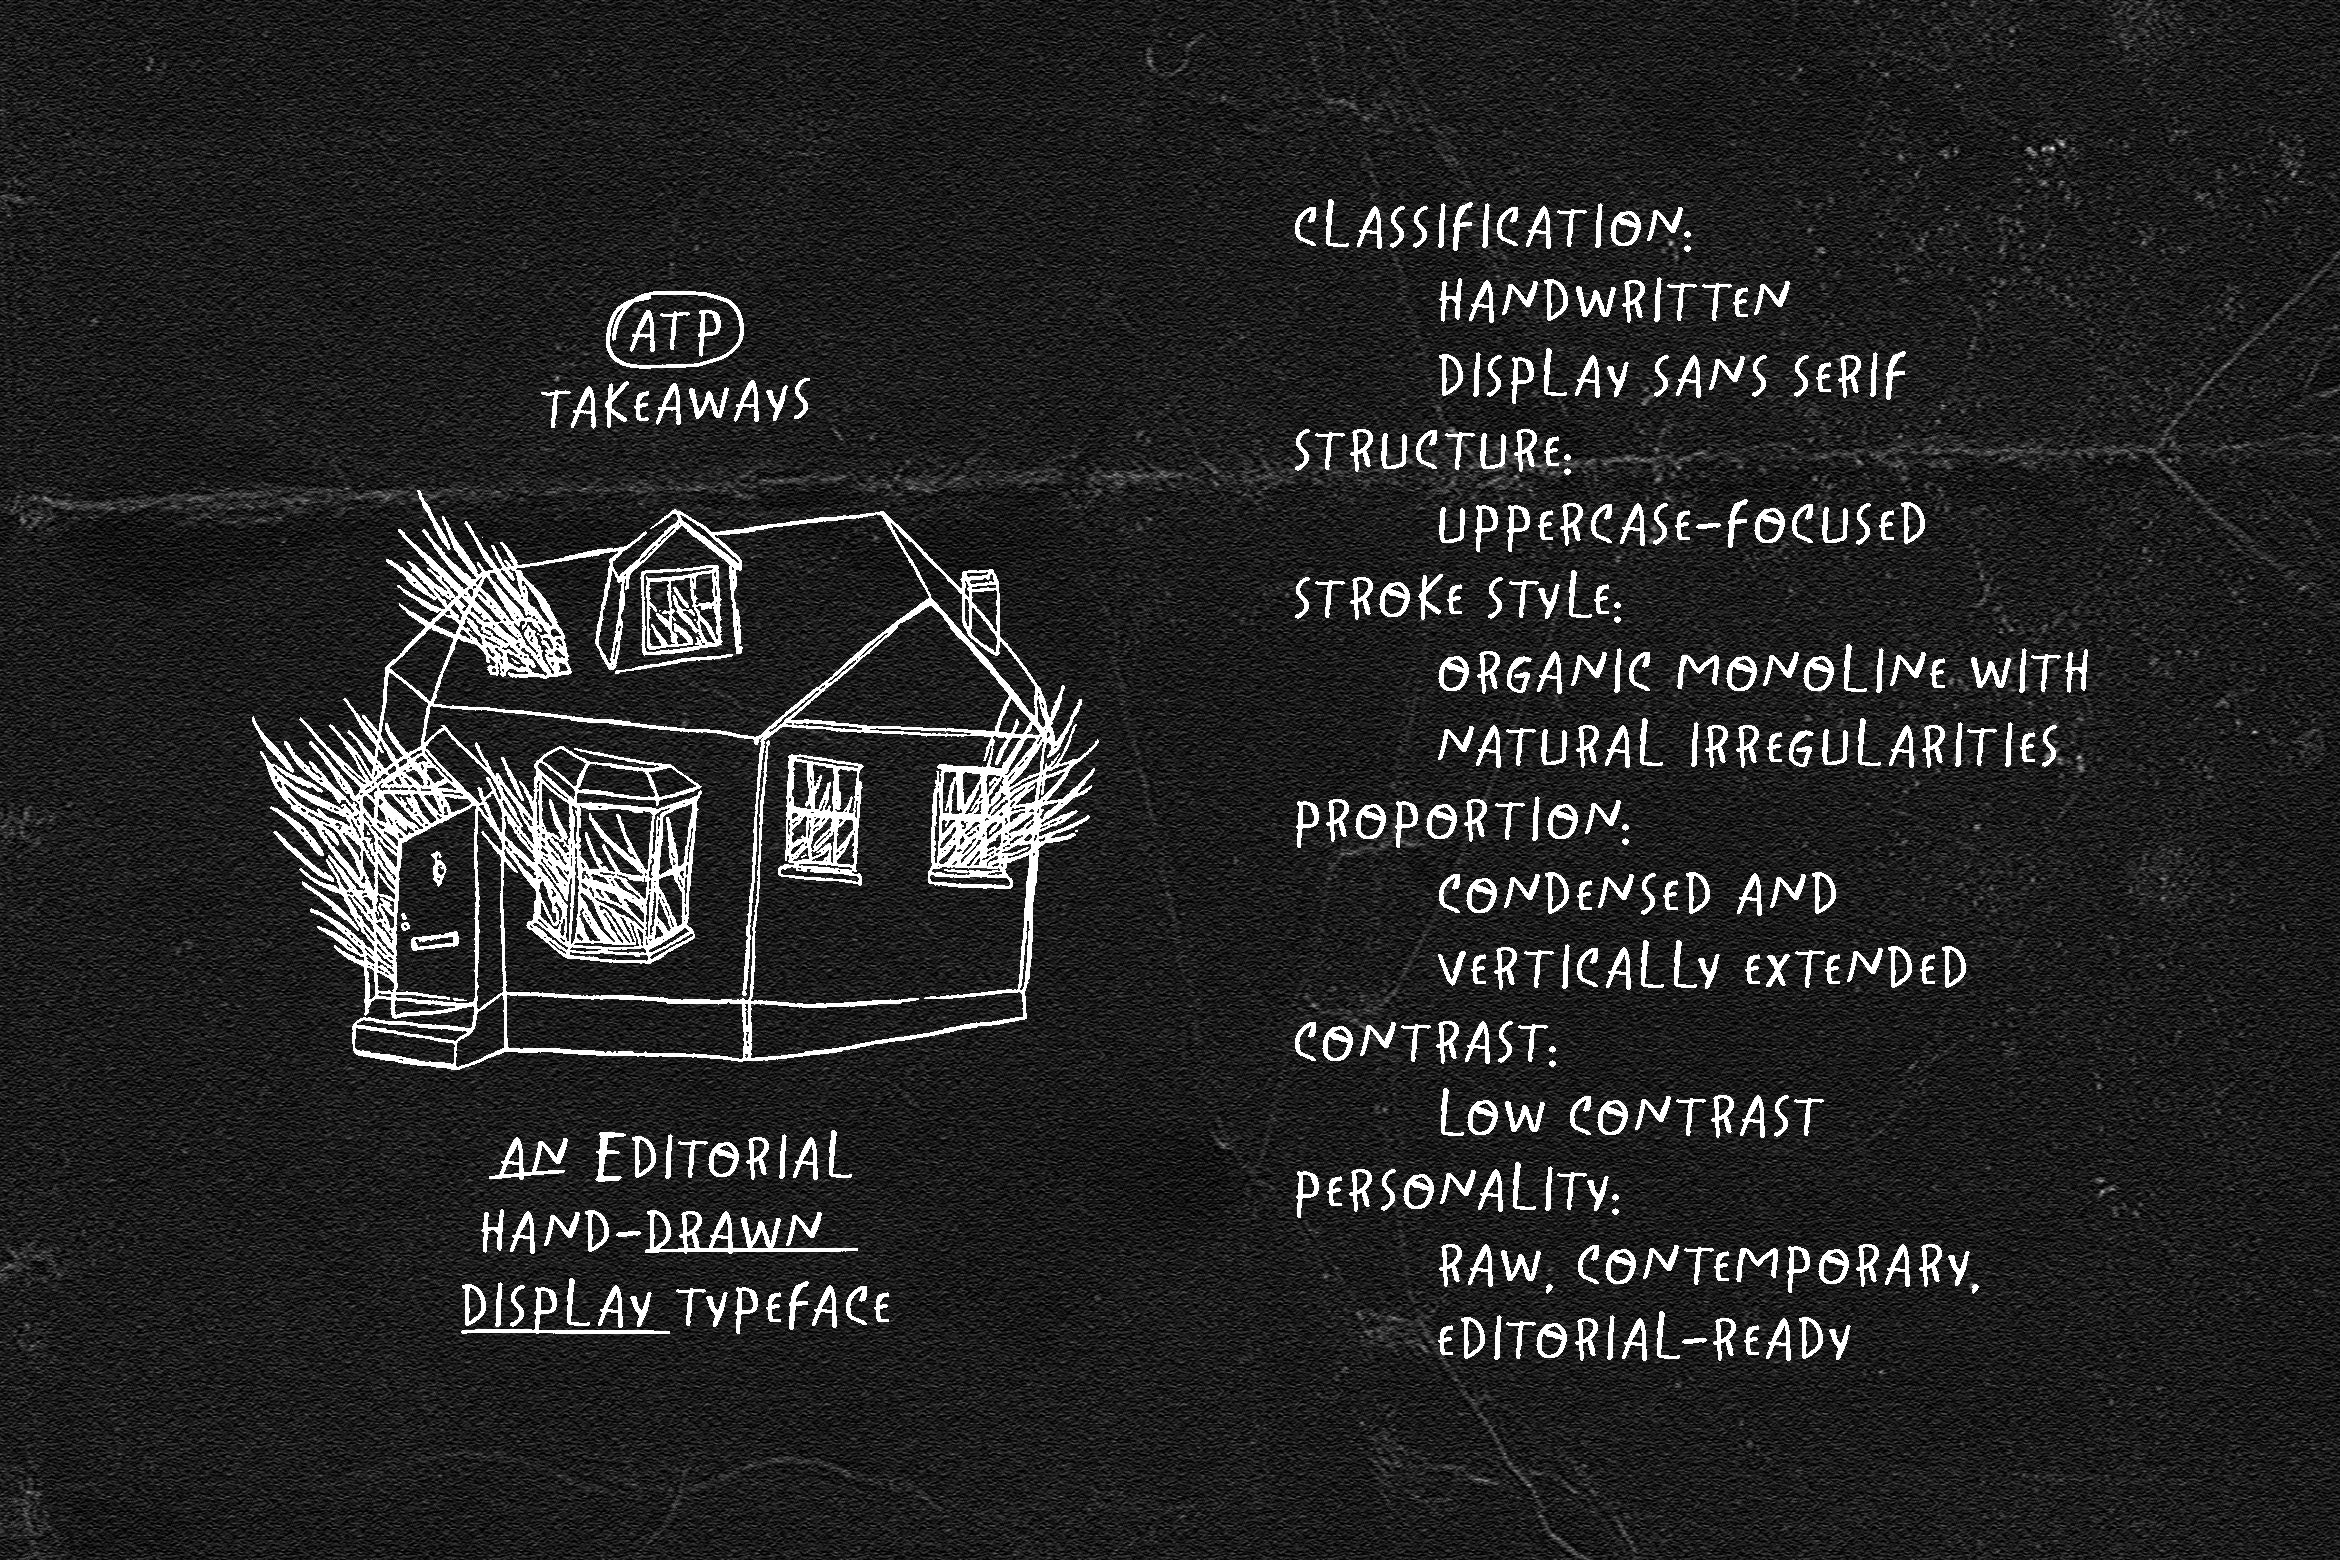 ATP
TAKEAWAYS
AN EDITORIAL
HAND-DRAWN
DISPLAY TYPEFACE
CLASSIFICATION:
HANDWRITTEN
DISPLAY SANS SERIF
STRUCTURE:
UPPERCASE-FOCUSED
STROKE STYLE:
ORGANIC MONOLINE WITH
NATURAL IRREGULARITIES
PROPORTION:
CONDENSED AND
VERTICALLY EXTENDED
CONTRAST:
LOW CONTRAST
PERSONALITY:
RAW, CONTEMPORARY,
EDITORIAL-READY